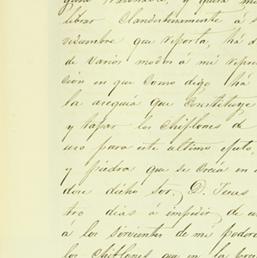 librar Clandestinamente á s
servidumbre que reporta, há d
de varios modos á mi repre
cion en que como digo há
la acequia que Constituye
y tapar los Chiflones d
uso para este ultimo efeto
y piedra que se Creia en s
dose dicho Sor. D. Jesus
tro dias á impedir de u
á los Sirvientes de mi podero
los Chiflones que en la boca